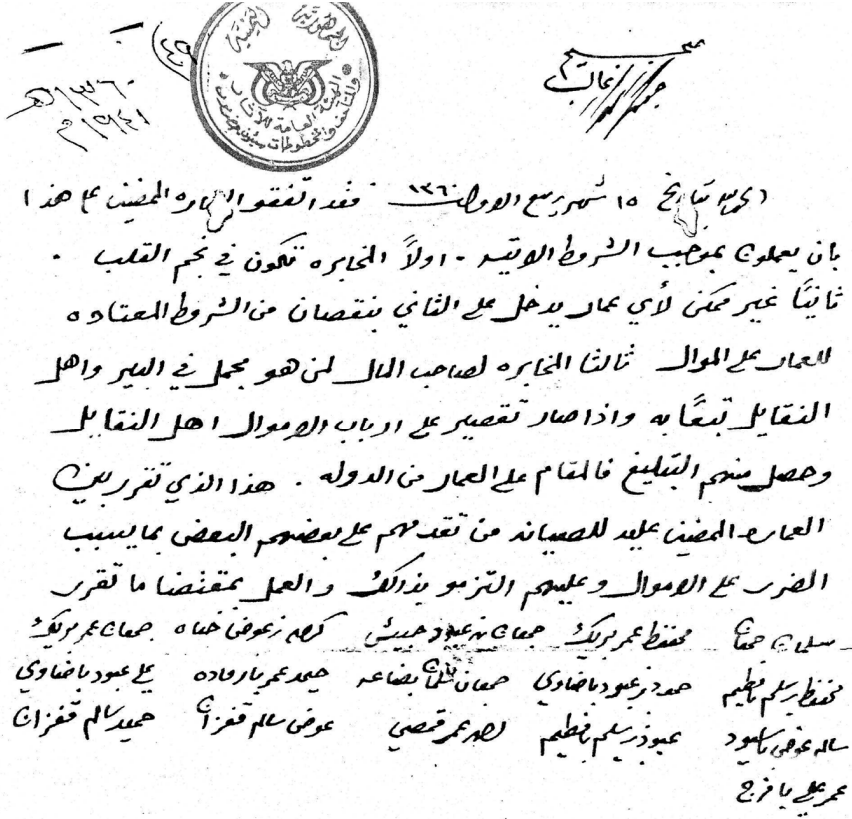 ١٣٦٠ هـ
١٩٤١ م
الجمهورية اليمنية
الهيئة العامة للآثار
والمتاحف والمخطوطات سيئون حضرموت
بتاريخ ١٥ شهر ربيع الاول ١٣٦٠ فقد اتفقو العماره الممضين على هذا
بان يعملون بموجب الشروط الاتيه . اولاً المخابره تكون في نجم القلب .
ثانيًا غير ممكن لأي عمار يدخل على الثاني بنقصان من الشروط المعتاده
للعمار على الموال ثالثا المخابره لصاحب المال لمن هو محمل في البير واهل
النقايل تبعًا به واذا صار تقصير على ارباب الاموال اهل النقايل
وحصل منهم التبليغ فالمقام على العمار من الدوله . هذا الذي تقرر بين
العماره الممضين عليه للصيانه من تقدمهم على بعضهم البعض بما يسبب
الضرر على الاموال وعليهم التزمو بذالك والعمل بمقتضا ما تقرر
سلمان جمعان محفظ عمر بريك جمعان بن عبود حبيش عوض جمعان عمر بريك
محفظ بن سلم بافطيم حمود بن عبود باضاوي جمعان سلمان بضاعه حيمد عمر بارماده علي عبود باضاوي
سالم عوض باسيود عبود بن سلم بافطيم نصر عمر قمصي عوض سالم قفزان حميد سالم قفزان
عمر علي بافرج